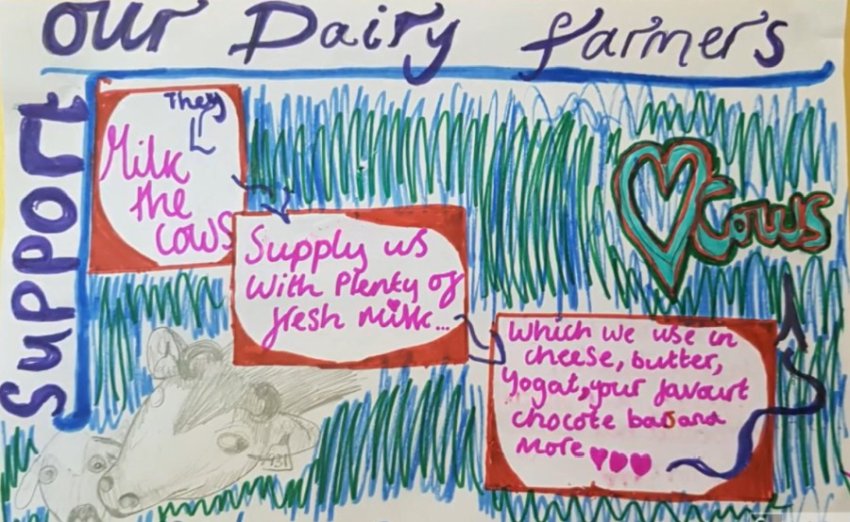 Support
our Dairy farmers
They
Milk
the
cows
Supply us
with Plenty of
fresh Milk...
Which we use in
cheese, butter,
Yogat, your favourt
chocote bar and
More
Cows